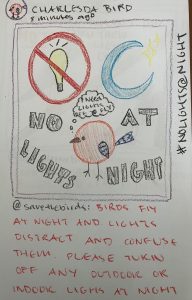 CHARLESDA BIRD
8 minutes ago
#NOLIGHTS@NIGHT
NO
AT
LIGHTS
NIGHT
@savethebirds: BIRDS FLY
AT NIGHT AND LIGHTS
DISTRACT AND CONFUSE
THEM. PLEASE TURN
OFF ANY OUTDOOR OR
INDOOR LIGHS AT NIGHT